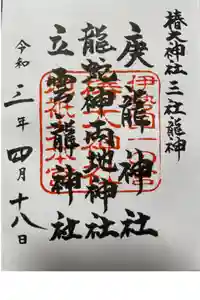 椿大神社 三社龍神
庚龍神社
龍蛇神 地神社
立雲龍神社
令和三年四月十八日